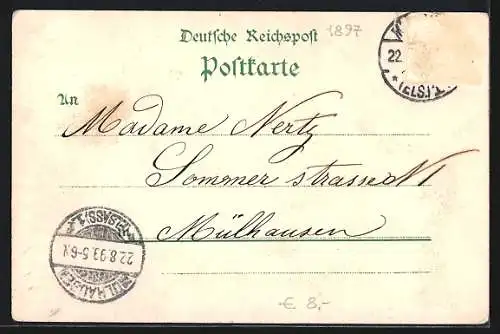 Deutsche Reichspost
1897
Postkarte
An
Madame Nertz
Sommer strasse N 1
Mülhausen
22.
* (ELS.) 1.
MÜLHAUSEN (ELSASS) 1.
22.8.93.5-6N
€ 8,-